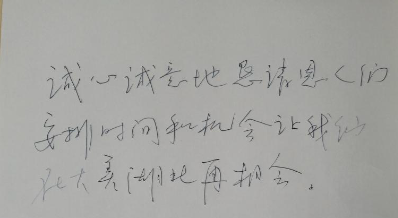 诚心诚意地恩请恩人们
安排时间和机会让我们
在大美湖北再相会。